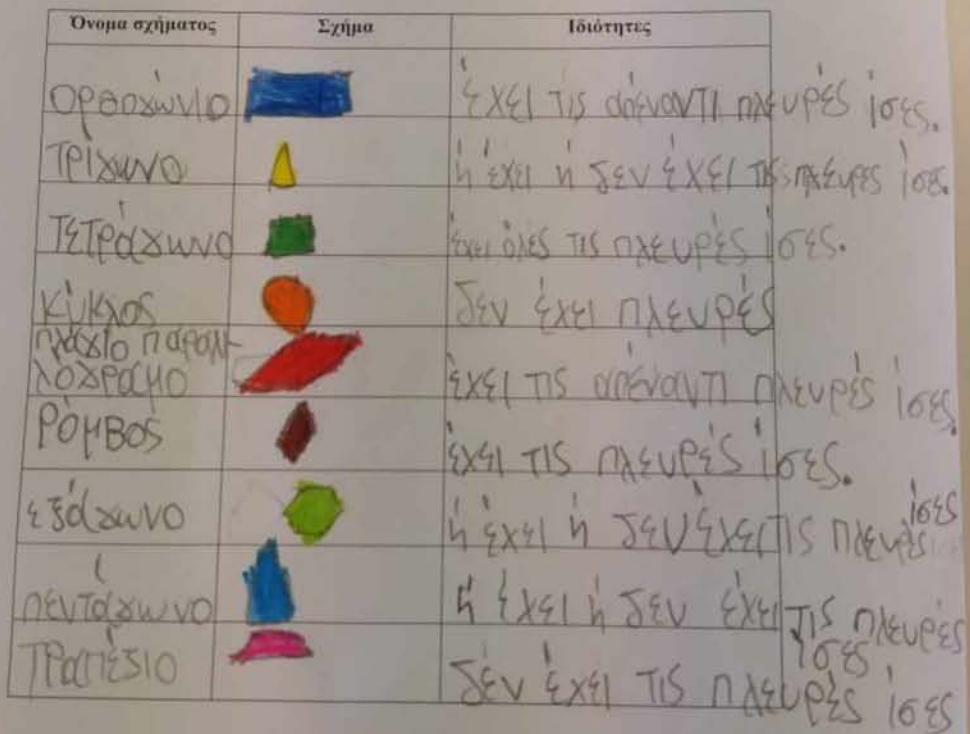 Όνομα σχήματος Σχήμα Ιδιότητες
ορθογώνιο έχει τις απέναντι πλευρές ίσες.
τρίγωνο ή έχει ή δεν έχει τις πλεύρες ίσες.
τετράγωνο έχει όλες τις πλευρές ίσες.
κύκλος δεν έχει πλευρές
πλάγιο παραλ-
λόγραμο έχει τις απέναντι πλευρές ίσες.
ρόμβος έχει τις πλευρές ίσες.
εξάγωνο ή έχει ή δεν έχει τις πλευρές ίσες
πεντάγωνο ή έχει ή δεν έχει τις πλευρές
ίσες
τραπέζιο δέν έχει τις πλευρές ίσες